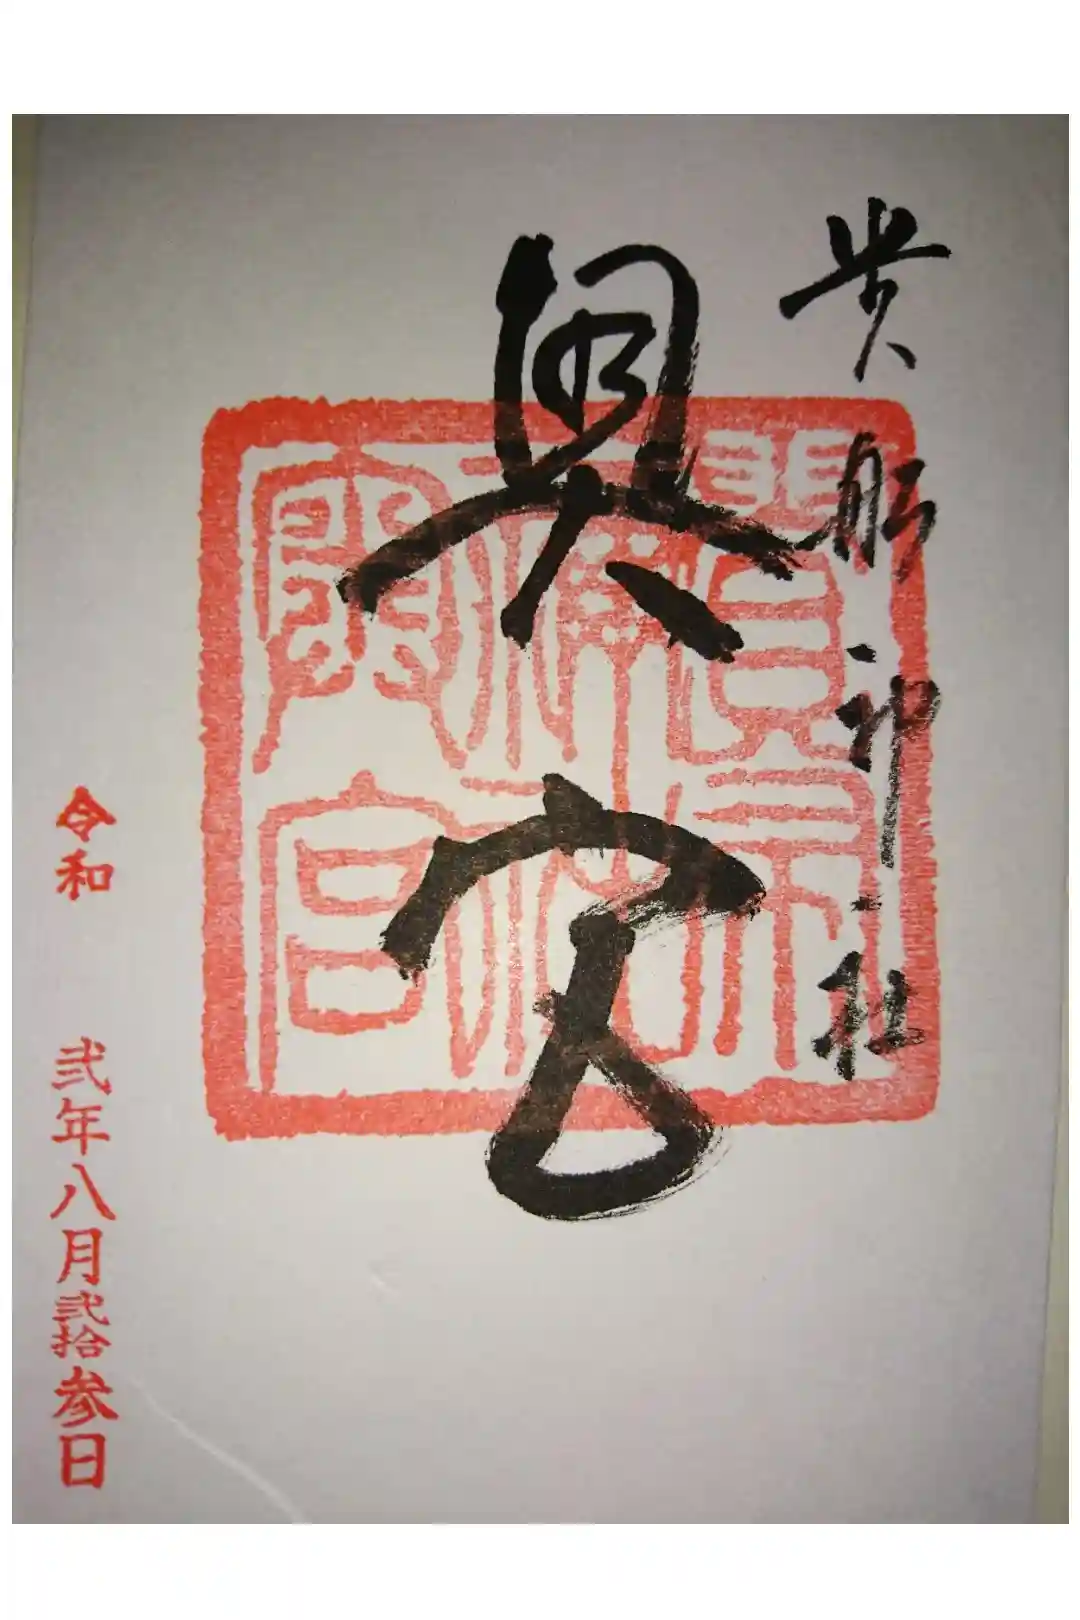 貴船神社
奥宮
貴布
禰社
奥宮
令和 弐年八月弐拾参日